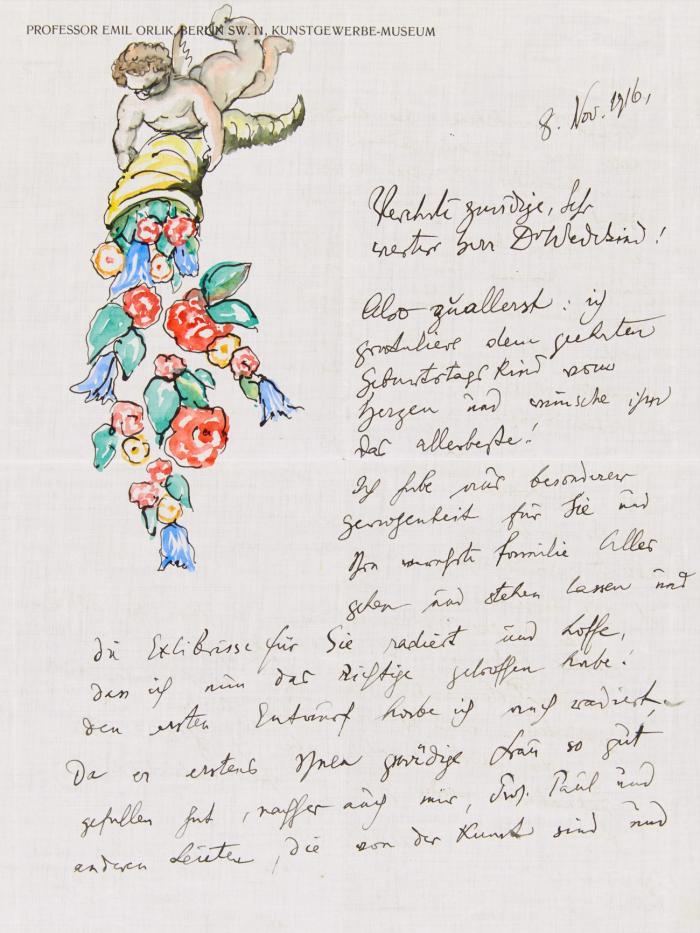 PROFESSOR EMIL ORLIK, BERLIN SW. 11, KUNSTGEWERBE-MUSEUM
8. Nov. 1916.
gnädige, sehr
werter Herr
Also zuallerst: ich
gratuliere dem geehrten
Geburtstags Kind vom
Herzen und wünsche ihm
das allerbeste!
Ich habe aus besonderer
gewogenheit für Sie und
Ihre Familie Alles
gehen und stehen lassen und
die ExLibrisse für Sie radiert und hoffe,
dass ich nun das Richtige getroffen habe!
den ersten Entwurf habe ich auch radiert.
Da er erstens Ihnen gnädige Frau so gut
gefallen hat, auch mir, Paul und
anderen Leuten, die von der Kunst sind und